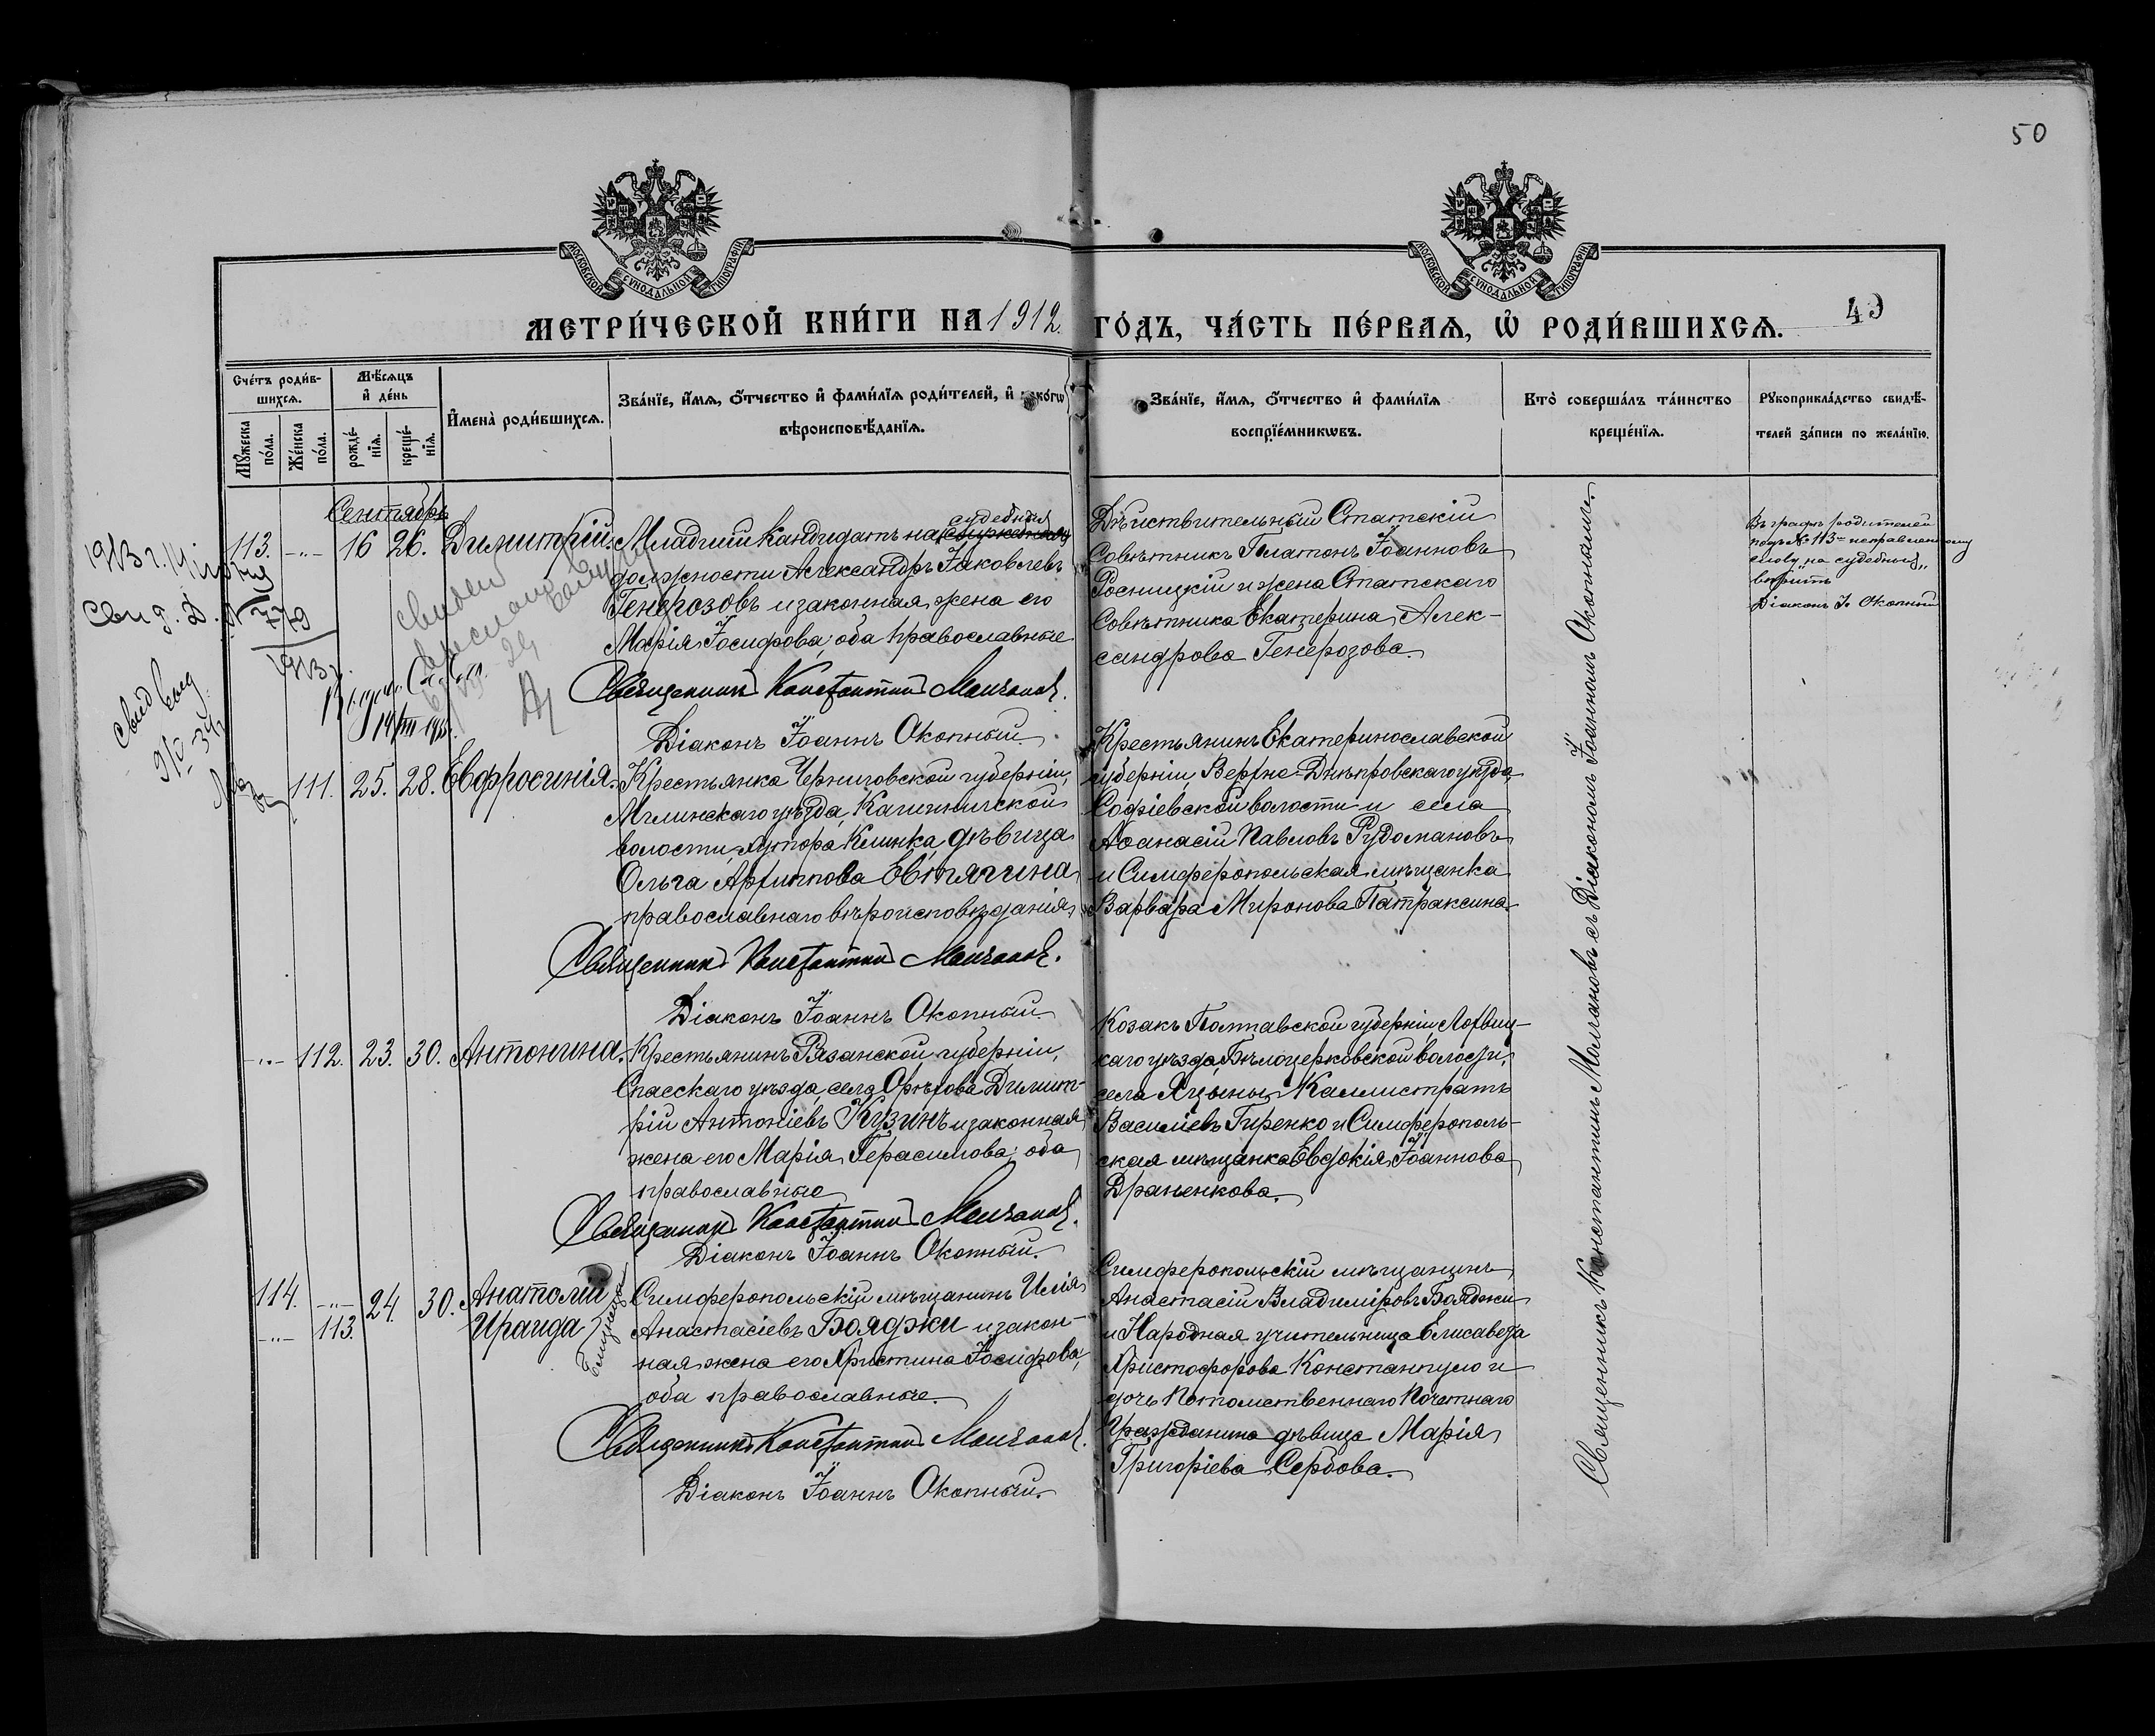 50
МОСКОВСКОЙ СУНОДАЛЬНОЙ ТИПОГРАФІИ
МОСКОВСКОЙ СУНОДАЛЬНОЙ ТИПОГРАФІИ
МЕТРИ́ЧЕСКОЙ КНИ́ГИ НА 1912. ГО́ДЪ, ЧА́СТЬ ПЕ́РВАѦ, Ѡ҆ РОДИ́ВШИХСѦ. 49
Сче́тъ роди́в-
шихсѧ.
Мѣ́сѧцъ
и҆ де́нь
Мꙋ́жеска
по́ла.
Же́нска
по́ла.
рожде́-
нїѧ.
креще́-
нїѧ.
И҆мена̀ роди́вшихсѧ.
Зва́нїе, и҆́мѧ, ѻ҆́тчество и҆ фами́лїѧ роди́телей, и҆ како́гѡ
вѣроисповѣ́данїѧ.
Зва́нїе, и҆́мѧ, ѻ҆́тчество и҆ фами́лїѧ
воспрїе́мникѡвъ.
Кто̀ соверша́лъ та́инство
креще́нїѧ.
Рꙋкоприкла́дство свидѣ́-
телей за́писи по жела́нїю.
Сентябрь
113. -"- 16 26. Димитрій.
судебныя
Младшій кандидатъ на
должности Александръ Іаковлевъ
Генерозовъ и законная жена его
Марія Іосифова, оба православные
Священникъ Константинъ Молчановъ.
Діаконъ Іоаннъ Окопный.
Дѣйствительный Статскій
Совѣтникъ Платонъ Іоанновъ
Росницкій и жена Статскаго
Совѣтника Екатерина Алек-
сандрова Генерозова.
Въ графѣ родителей
подъ № 113 исправленному
слову „на судебныя„
вѣрить
Діаконъ І. Окопный
1913 г.
Свид. Д. № 779
1913 г.
111. 25. 28. Евфросинія.
Крестьянка Черниговской губерніи,
Мглинскаго уѣзда,
волости, хутора Клинка, дѣвица
Ольга Архиппова Евтягина
православнаго вѣроисповѣданія,
Священникъ Константинъ Молчановъ.
Діаконъ Іоаннъ Окопный.
Крестьянинъ Екатеринославской
губерніи, Верхне-Днѣпровскаго уѣзда
Софіевской волости и села
Аѳанасій Павловъ Рудомановъ
и Симферопольская мѣщанка
Варвара Миронова Патраксина.
-"- 112. 23. 30. Антонина.
Крестьянинъ Рязанской губерніи,
Спасскаго уѣзда, села Орѣхова Димит-
рій Антоніевъ Кузинъ и законная
жена его Марія Герасимова; оба
православные
Священникъ Константинъ Молчановъ.
Діаконъ Іоаннъ Окопный.
Козакъ Полтавской губерніи, Лохвиц-
каго уѣзда, Бѣлоцерковской волости,
села Яцыны Каллистратъ
Василіевъ Гиренко и Симферополь-
ская мѣщанка Евдокія Іоаннова
Драненкова.
114. -"- 24. 30. Анатолій
-"- 113. Ираида
Близнецы
Симферопольскій мѣщанинъ Илія
Анастасіевъ Бояджи и закон-
ная жена его Христина Іосифова,
оба православные.
Священникъ Константинъ Молчановъ.
Діаконъ Іоаннъ Окопный.
Симферопольскій мѣщанинъ
Анастасій Владиміровъ Бояджи
и Народная учительница Елисавета
Христофорова Константуло и
дочь Потомственнаго Почетнаго
Гражданина дѣвица Марія
Григоріева Сербова.
Священникъ Константинъ Молчановъ съ Діакономъ Іоанномъ Окопнымъ.